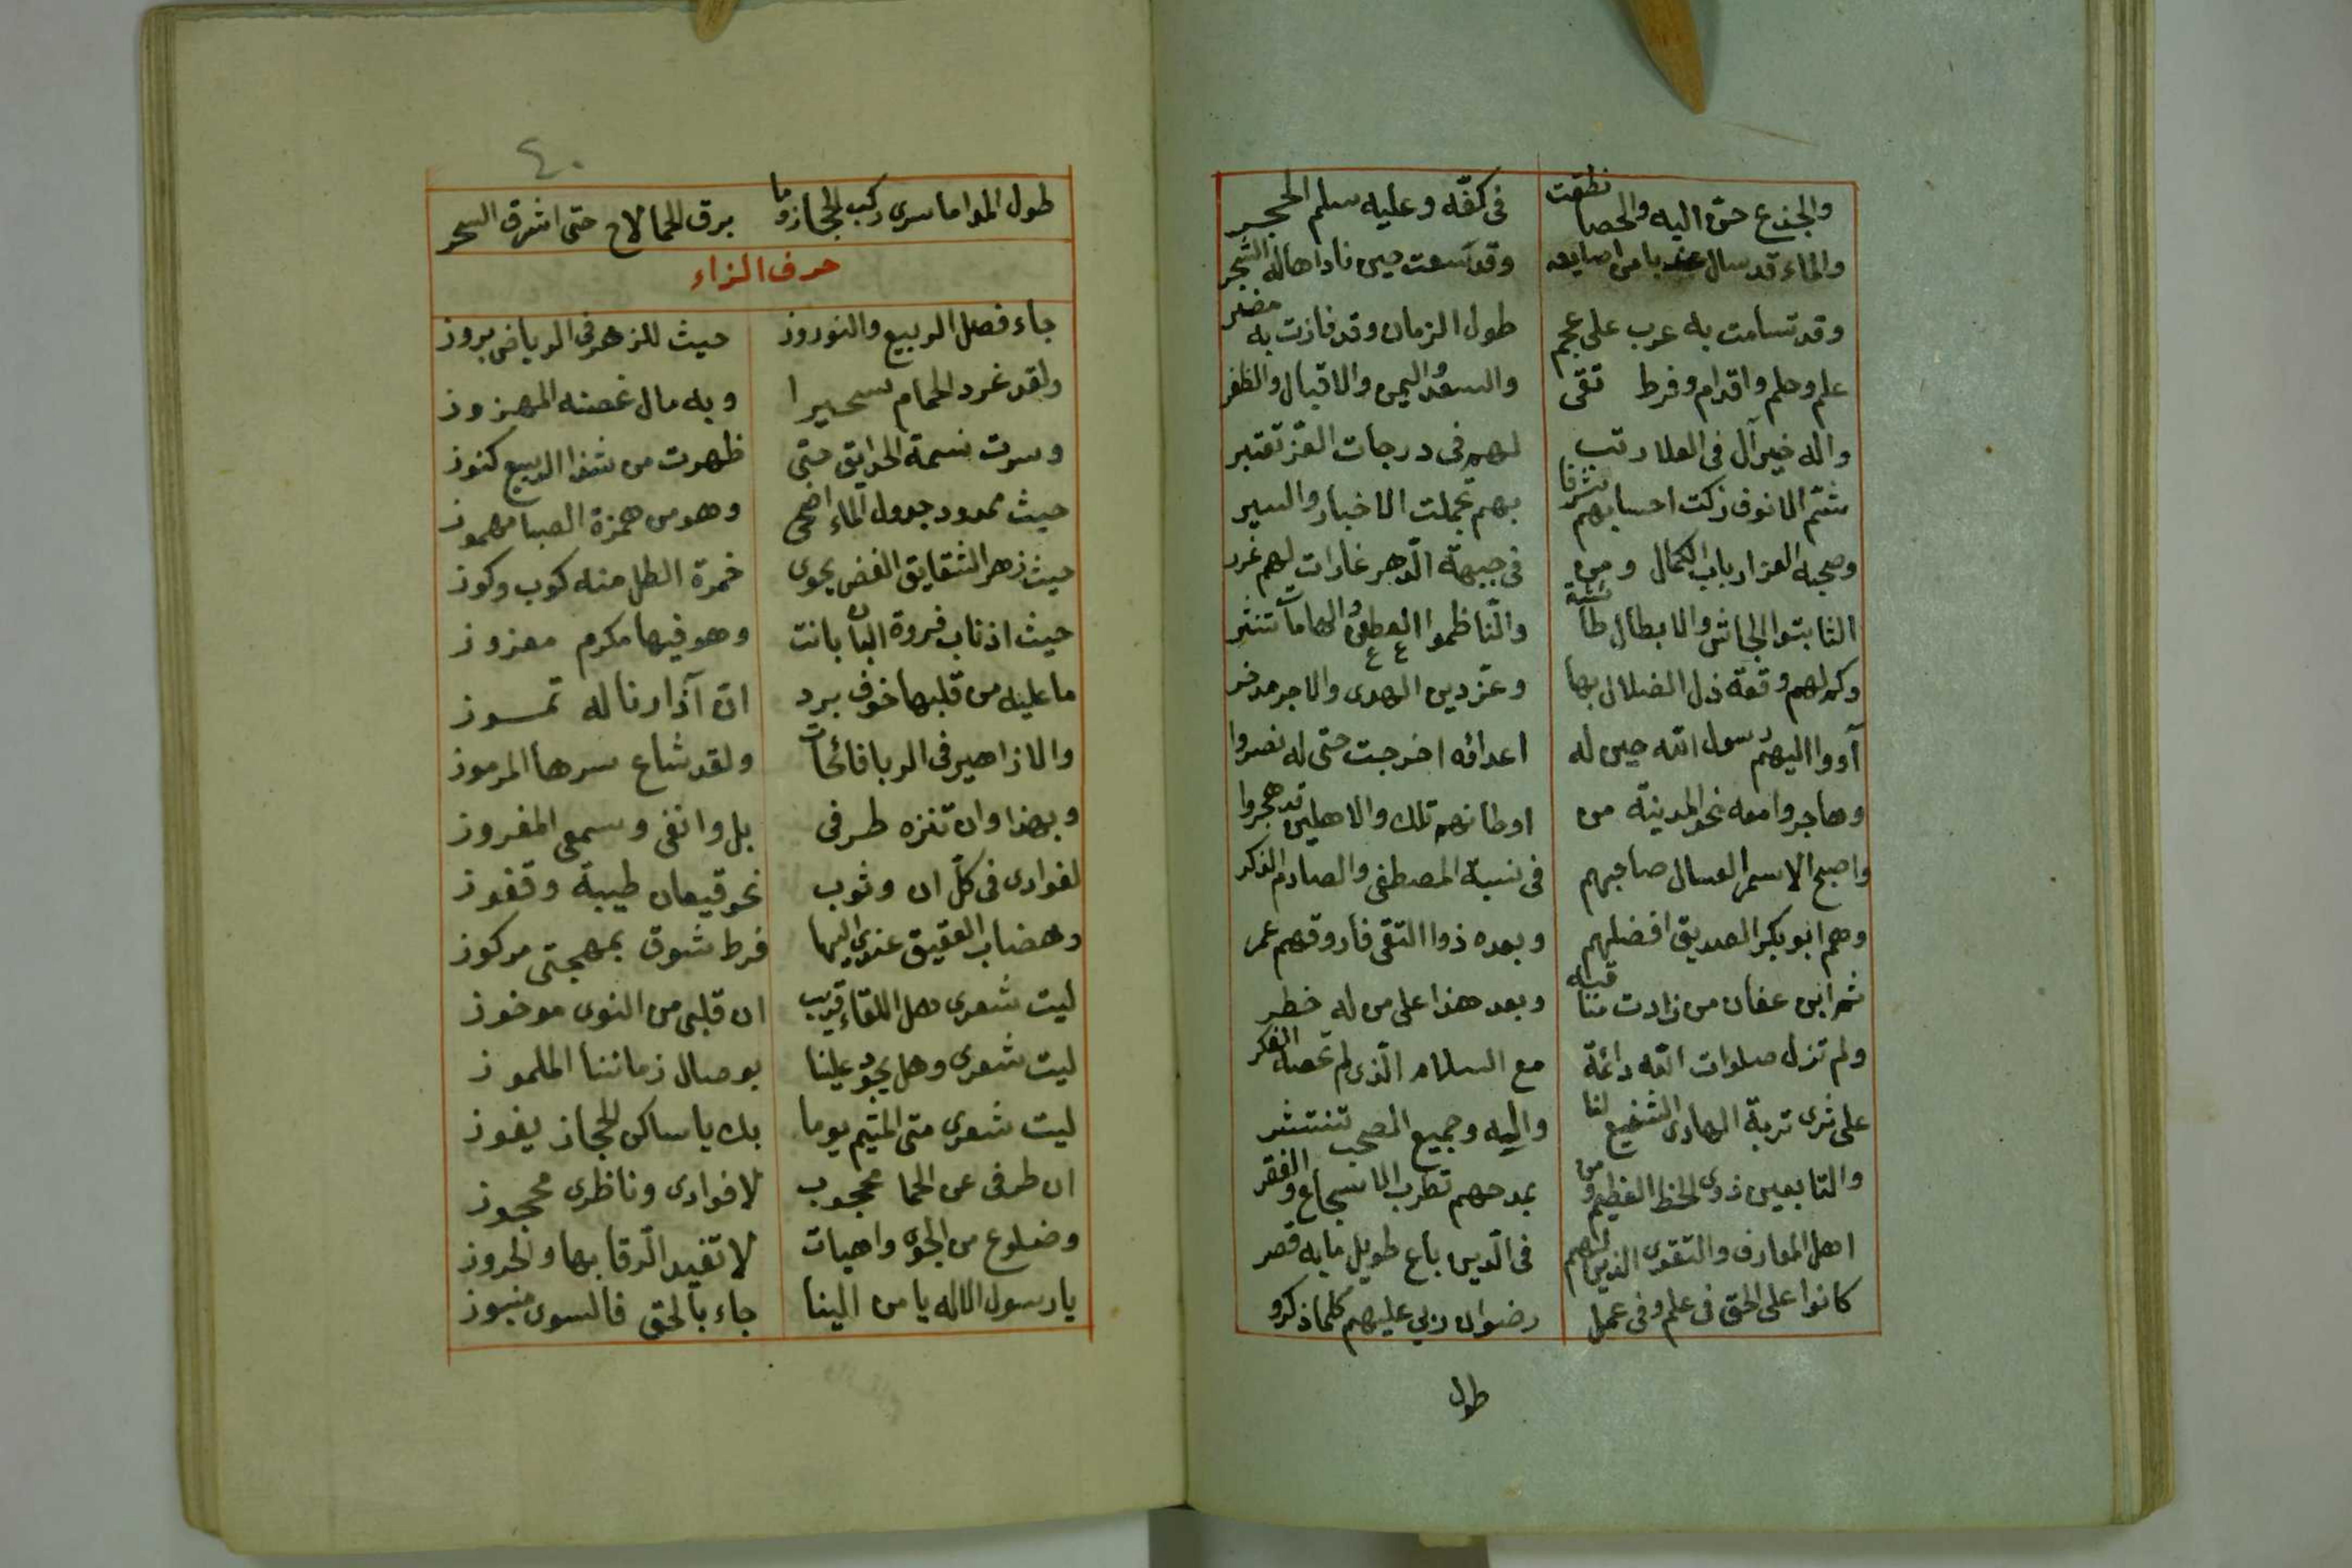 والجذع حن اليه والحصا نطقت في كفه وعليه سلم الحجر
والماء قد سال عذبا من اصابعه وقد سعت حين ناداها له الشجر
وقد تسامت به عرب على عجم طول الزمان وقد فازت به مضر
علم وحلم واقدام وفرط تقى والسعد واليمن والاقبال والظفر
واله خير آل في العلا رتب لهم في درجات العز تعتبر
شم الانوف زكت احسابهم شرفا بهم تجملت الاخبار والسير
وصحبه الغر ارباب الكمال ومن في جبهة الدهر غارات لهم غرر
الثابتوا الجاش والابطال طائشة والناظموا الطعن والهامات تنتثر
وكم لهم وقعة ذل الضلال بها وعز دين الهدى والاجر مدخر
آووا اليهم رسول الله حين له اعداؤه اخرجت حتى له نصروا
وهاجروا معه نحو المدينة من اوطانهم تلك والاهلين قد هجروا
واصبح الاسمر العسال صاحبهم في نسبة المصطفى والصارم الذكر
وهم ابو بكر الصديق افضلهم وبعده ذوا التقى فاروقهم عمر
ثم ابن عفان من زادت مناقبه وبعد هذا على من له خطر
ولم تزل صلوات الله دائمة مع السلام الذي لم تحصه الفكر
على ثرى تربة الهادي الشفيع لنا واليه وجميع الصحب تنتشر
والتابعين ذوى الحظ العظيم ومن بمدحهم تطرب الاسجاع والفقر
اهل المعارف والتقوى الذين لهم في الدين باع طويل ما به قصر
كانوا على الحق في علم وفي عمل رضوان ربي عليهم كلما ذكروا
طول
٤٠
طول المدا ما سرى ركب الحجاز وما برق الحما لاح حتى اشرق السحر
حرف الزاء
جاء فصل الربيع والنوروز حيث للزهر في الرياض بروز
ولقد غرد الحمام سحيرا وبه مال غصنه المهزوز
وسرت نسمة الحدايق حتى ظهرت من شذا الربيع كنوز
حيث ممدود جدول الماء اضحى وهو من همزة الصبا مهموز
حيث زهر الشقايق الغض يحوى خمرة الطل منه كوب وكوز
حيث اذناب فروة البان بانت وهو فيها مكرم معزوز
ما عليه من قلبها خوف برد ان آذارنا له تموز
والازاهير في الربا فائحات ولقد شاع سرها المرموز
وبهذا وان تنزه طرفي بل وانفي وسمعي المفروز
لفوادى في كل ان وثوب نحو قيعان طيبة وقفوز
وهضاب العقيق عندي اليها فرط شوق بمهجتي مركوز
ليت شعرى هل اللقاء قريب ان قلبي من النوى موخوز
ليت شعرى وهل يجود علينا بوصال زماننا الملموز
ليت شعرى متى المتيم يوما بك يا ساكن الحجاز يفوز
ان طرفي عن الحما محجوب لا فوادى وناظرى محجوز
وضلوع من الجوى واهيات لا تفيد الرقا بها والحروز
يا رسول الاله يا من الينا جاء بالحق فالسوى منبوز